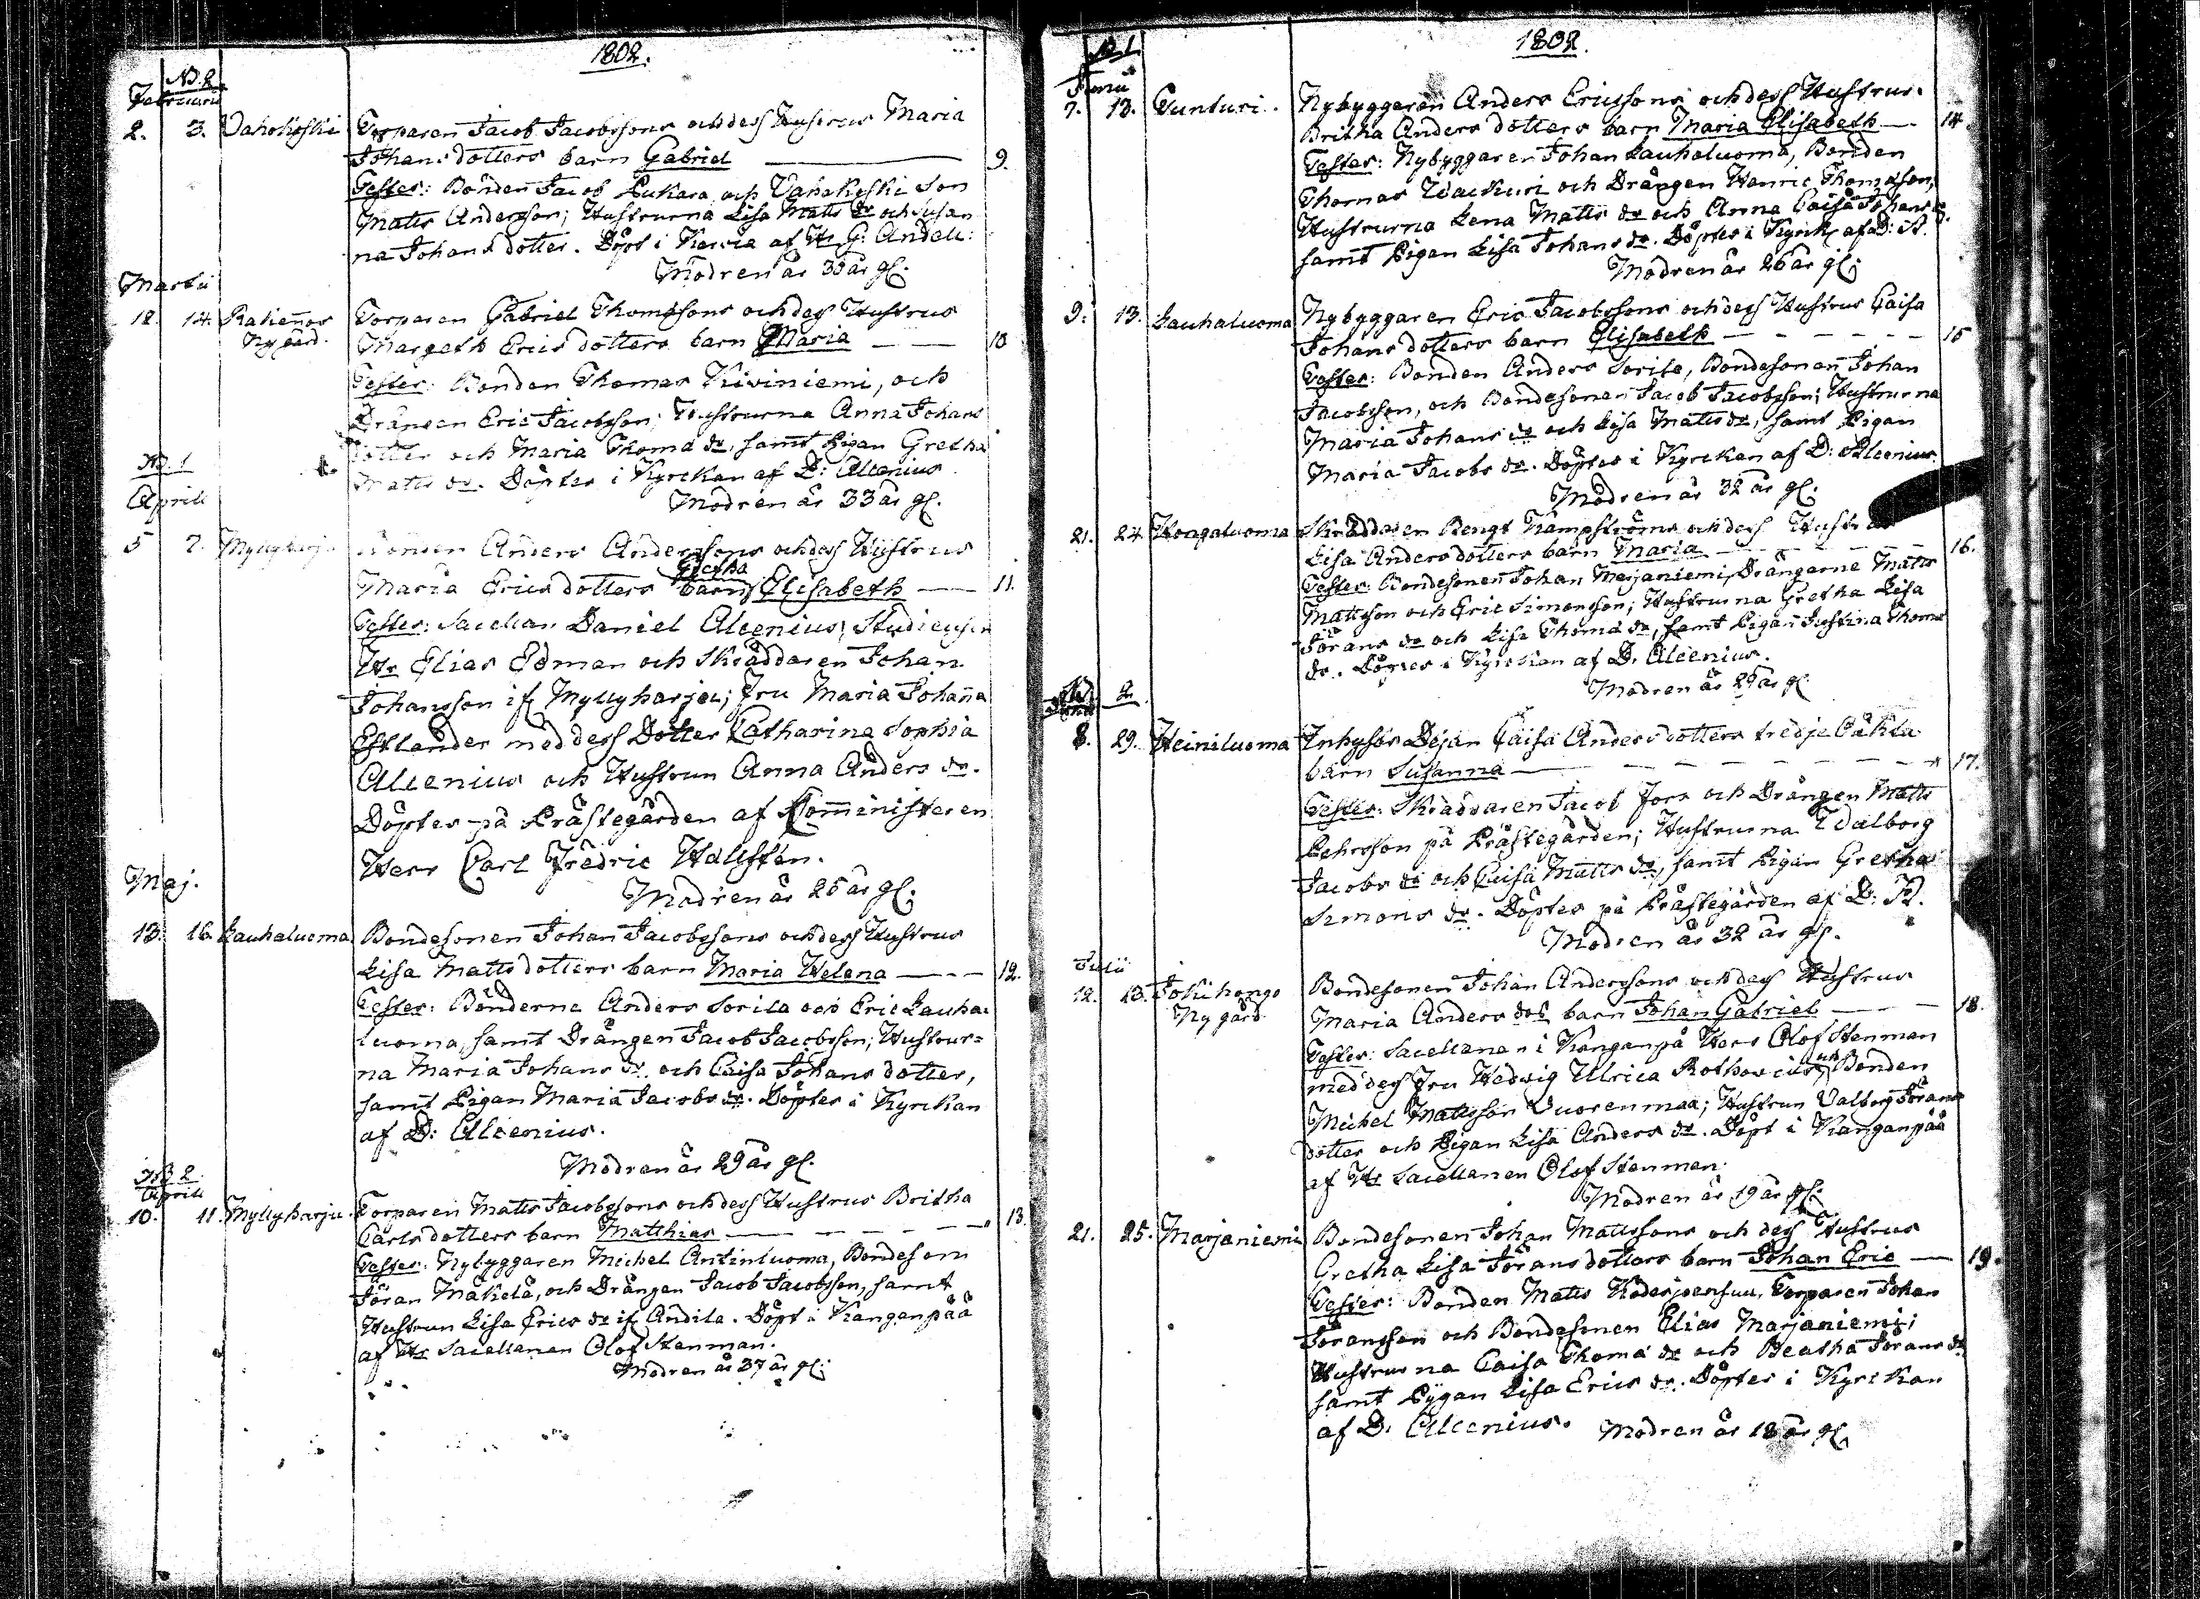 1802.
No. 2
Februarii
2. 3. Vahokoski Torparen Jacob Jacobssons och dess Hustrus Maria
Johans dotters barn Gabriel 9.
Testes: Bonden Jacob Pukara och Vahakoski Son
Matts Andersson; Hustrurna Lisa Matts dr och Susan
na Johans dotter. Döpt i Karvia af Hr G: Andell:
Modren är 30 år gl:
Martii
12. 14. Rakennos Torparen Gabriel Thomæsons och dess Hustrus
Nygård. Margeth Erics dotters barn Maria 10
Testes: Bonden Thomas Kiviniemi, och
Drängen Eric Jacobsson; Hustrurna Anna Johans
dotter och Maria Thomæ dr, samt Pigan Gretha
Matts dr. Döptes i Kyrckan af D: Alcenius
Modren är 33 år gl.
No. 1
Aprili
5 7. Myllyharju Bonden Anders Anderssons och dess Hustrus
Gretha
Maria Erics dotters barn Elisabeth 11.
Testes: Sacellan Daniel Alcenius, Studiosen
Hr Elias Edman och Skräddaren Johan
Johansson if Myllyharju; Fru Maria Johanna
Estlander med dess Dotter Catharina Sophia
Alcenius och Hustrun Anna Anders dr.
Döptes på Prästegården af Komministeren
Herr Carl Fredric Hällstén.
Modren är 25 år gl:
Maj.
13. 16. Lauhaluoma Bondesonen Johan Jacobssons och dess Hustrus
Lisa Mattsdotters barn Maria Helena 12.
Testes: Bönderna Anders Sorila och Eric Lauha-
luoma, samt Drängen Jacob Jacobsson; Hustrur=
na Maria Johans dr. och Caisa Johans dotter,
samt Pigan Maria Jacobs dr. Döptes i Kyrckan
af D: Alcenius.
Modren är 29 år gl.
No 2
Aprili
10. 11. Myllyharju. Torparen Matts Jacobssons och dess Hustrus Britha
Carls dotters barn Matthias 13.
Testes: Nybyggaren Michel Antinluoma, Bondeson
Jöran Mäkelä, och Drängen Jacob Jacobsson, samt
Hustrun Lisa Erics dr if Andila. Döpt i Kanganpää
af Hr Sacellanen Olof Stenman.
Modren är 37 år gl:
1802.
No 1
Junii
7. 13. Tunturi. Nybyggaren Anders Ericssons och dess Hustrus
Britha Anders dotters barn Maria Elisabeth 14.
Testes: Nybyggaren Johan Lauhaluoma, Bonden
Thomas Wackuri och Drängen Henric Thomæson;
Hustrurna Lena Matts dr och Anna Caisa Johans d.
samt Pigan Lisa Johans dr. Döptes i Kyrck. af D: A.
Modren är 26 år gl:
9. 13. Lauhaluoma Nybyggaren Eric Jacobssons och dess Hustrus Caisa
Johans dotters barn Elisabeth 15
Testes: Bonden Anders Sorila, Bondesonen Johan
Jacobsson, och Bondesonen Jacob Jacobsson; Hustrurna
Maria Johans dr och Lisa Matts dr, samt Pigan
Maria Jacobs dr. Döptes i Kyrckan af D: Alcenius.
Modren är 32 år gl:
21. 24. Hongaluoma Skräddaren Bengt Kampströms och dess Hustrus
Lisa Andersdotters barn Maria 16.
Testes: Bondesonen Johan Marjaniemi, Drängarne Matts
Mattsson och Eric Simonsson; Hustrurna Gretha Lisa
Jörans dr och Lisa Thomæ dr, samt Pigan Justina Thomæ
dr. Döptes i Kyrckan af D. Alcenius.
Modren är 29 år gl
No 2.
8. 29. Heiniluoma Inhyses Pigan Caisa Anders dotters tredje oäkta
barn Susanna 17.
Testes: Skräddaren Jacob Fors och Drängen Matts
Pehrsson på Prästegården; Hustrurna Walborg
Jacobs dr och Caisa Matts dr, samt Pigan Gretha
Simons dr. Döptes på Prästegården af D: A.
Modren är 32 år gl.
Julii
12. 13. Jokihongo Bondesonen Johan Anderssons och dess Hustrus
Nygård Maria Anders dotr barn Johan Gabriel 18.
Testes: Sacellanen i Kanganpä Herr Olof Stenman
med dess Fru Hedvig Ulrica Rothovius och Bonden
Michel Mattsson Vuorenmaa; Hustrun Valborg Jörans
dotter och Pigan Lisa Anders dr. Döpt i Kanganpää
af Hr Sacellanen Olof Stenman.
Modren är 19 år gl:
21. 25. Marjaniemi Bondesonen Johan Mattssons och dess Hustrus
Gretha Lisa Jörans dotters barn Johan Eric 19.
Testes: Bonden Matts Koderjoensuu, Torparen Johan
Jöransson och Bondesonen Elias Marjaniemi;
Hustrurna Caisa Thomæ dr och Beatha Jörans dr
samt Pygan Lisa Erics dr. Döptes i Kyrckan
af D. Alcenius. Modren är 18 år gl.